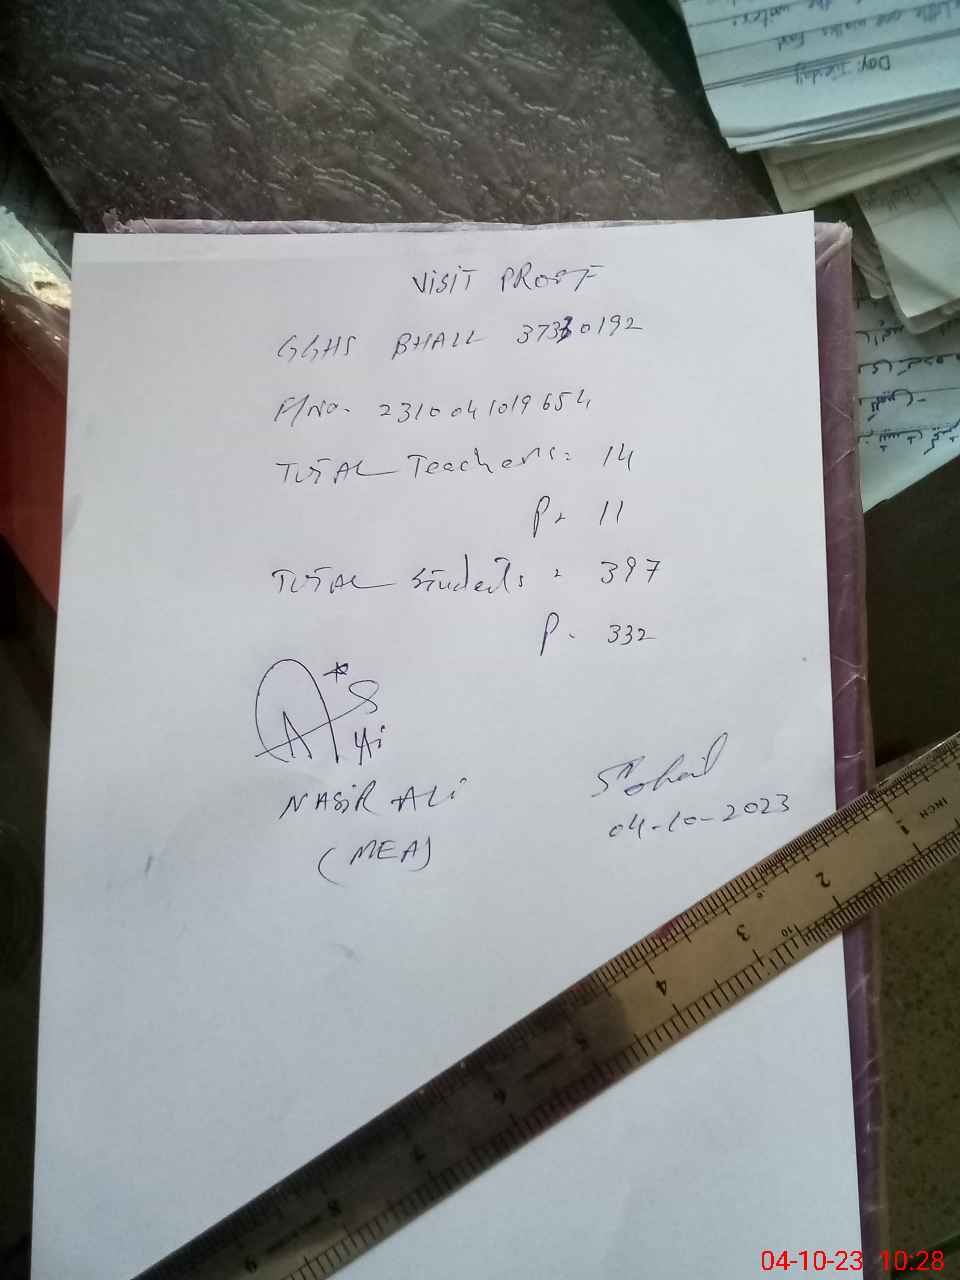 VISIT PROOF
GGHS BHALL 37330192
F/NO. 2310041019654
TOTAL Teachers = 14
P = 11
TOTAL Students = 397
P. 332
NASIR ALI
(MEA)
Sohail
04-10-2023
INCH
1
2
3
4
5
6
7
8
9
10
Day:
04-10-23 10:28